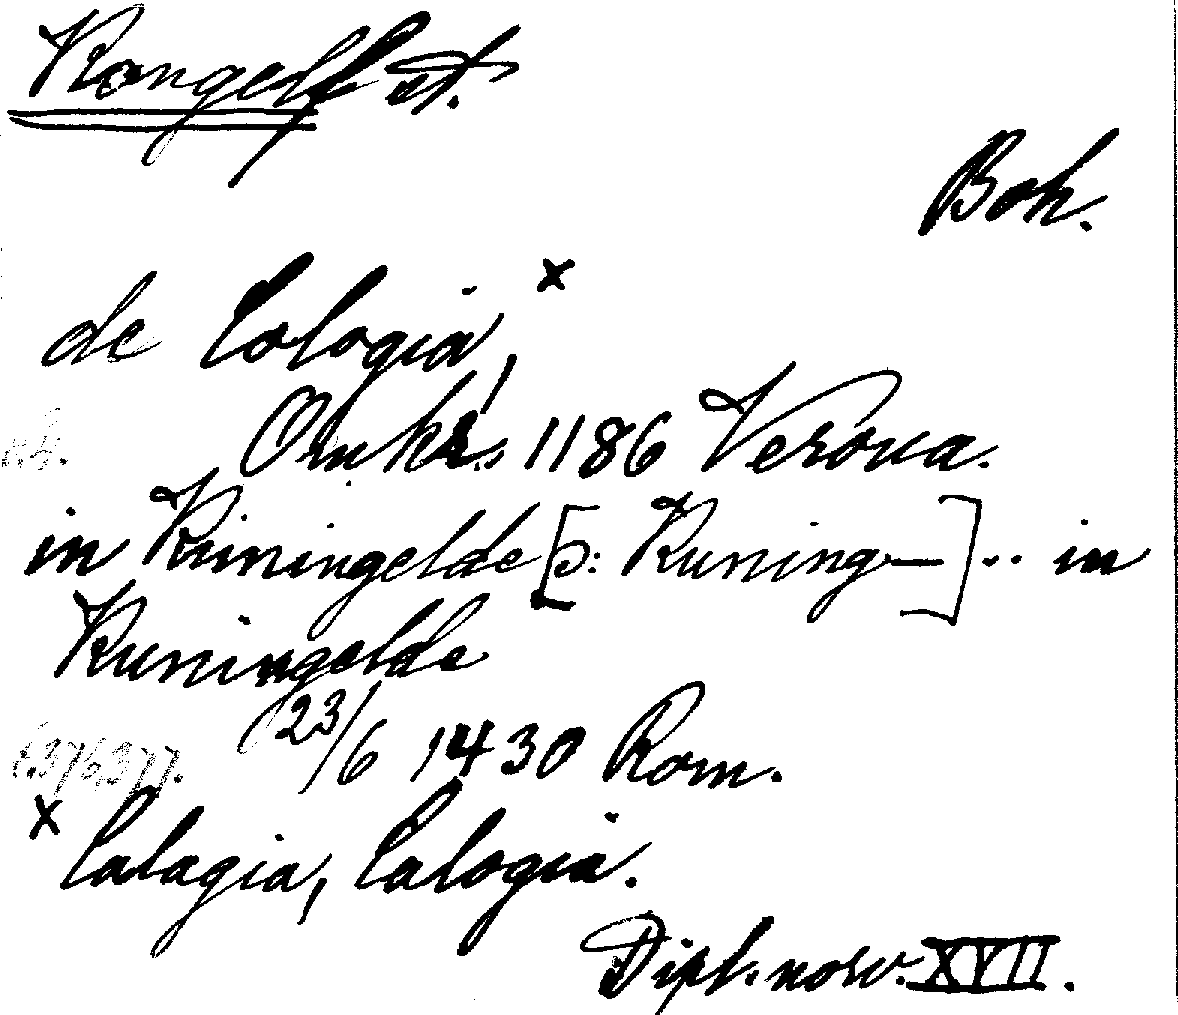 Kongelf st.
Boh.
de Cologia, x
Omkr. 1186 Verona.
in Kiningelde [ɔ: Kuning—] .. in
Kuningelde
23/6 1430 Rom.
x Calagia, Calogia.
Dipl. norv. XVII.